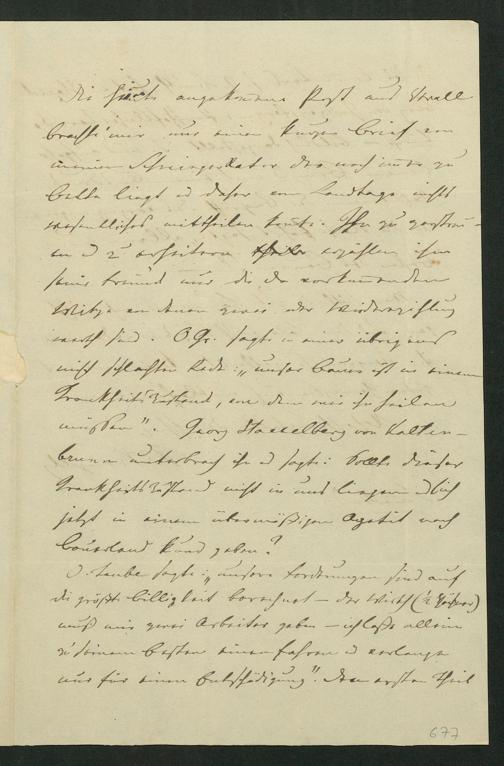 Die heute angekommene Post aus Reval
brachte mir nur einen kurzen Brief von
meinem Schwiegervater der noch immer zu
Bette liegt u daher vom Landtage nichts
wesentliches mittheilen konnte. Ihn zu zerstreu-
en u zu erheitern erzählen ihm
seine Freunde nur die da vorkommenden
Witze von denen zwei der Wiedererzählung
werth sind. O Gr. sagte in einer übrigens
nicht schlechten Rede: „unser Bauer ist in einem
Krankheitszustand, von dem wir ihn heilen
müssen". Georg von Kalten-
brunn unterbrach ihn u sagte: Sollte dieser
Krankheitszustand nicht in uns liegen u sich
jetzt in einem übermäßigen Apetit nach
Bauerland kund geben?
O. Taube sagte: „unsere Forderungen sind auf
die größte Billigkeit berechnet – der Wirth
muß mir zwei Arbeiter geben – ich lasse allein
zu seinem Besten einen fahren u verlange
nur für einen Entschädigung". Den ersten Theil
677